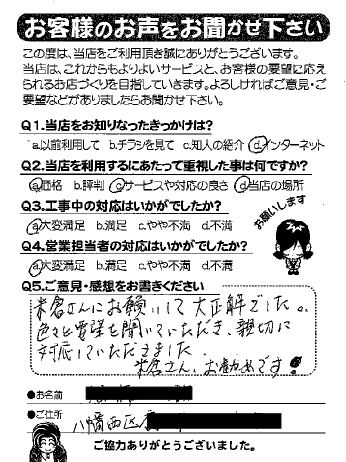 お客様のお声をお聞かせ下さい
この度は、当店をご利用頂き誠にありがとうございます。
当店は、これからもよりよいサービスと、お客様の要望に応え
られるお店づくりを目指していきます。よろしければご意見・ご
要望などがありましたらお聞かせ下さい。
Q1.当店をお知りなったきっかけは?
a.以前利用して b.チラシを見て c.知人の紹介 d.インターネット
Q2.当店を利用するにあたって重視した事は何ですか?
a.価格 b.評判 c.サービスや対応の良さ d.当店の場所
Q3.工事中の対応はいかがでしたか?
a.大変満足 b.満足 c.やや不満 d.不満
お願いします
Q4.営業担当者の対応はいかがでしたか?
a.大変満足 b.満足 c.やや不満 d.不満
Q5.ご意見・感想をお書きください
米倉さんにお願いして大正解でした。
色々と要望を聞いていただき、親切に
対応していただきました。
米倉さん、お勧めです!
●お名前
●ご住所
八幡西区
ご協力ありがとうございました。